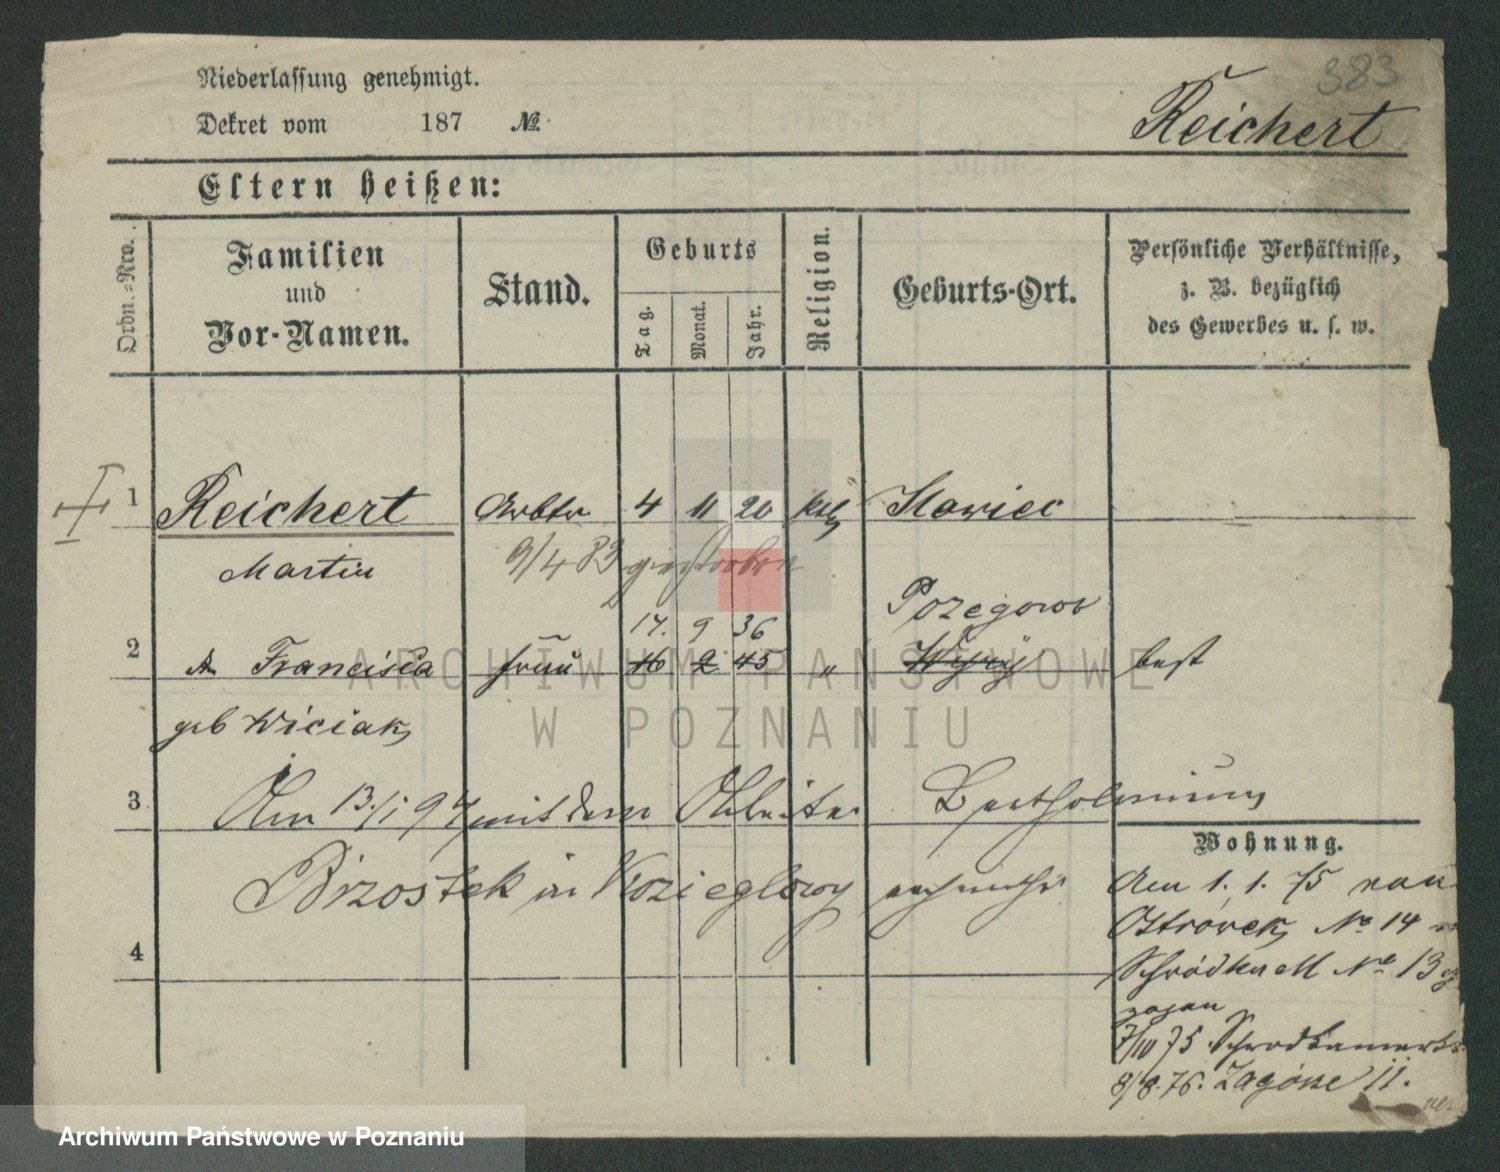 383
Niederlassung genehmigt.
Dekret vom 187 №
Reichert
Eltern heißen:
Ordn.-Nro.
Familien und Vor-Namen.
Stand.
Geburts
Tag.
Monat.
Jahr.
Religion.
Geburts-Ort.
Persönliche Verhältnisse,
z. B. bezüglich
des Gewerbes u. s. w.
1 Reichert Arbtr 4 11 20 kth
Martin 9/4 83 gestorben
17. 9 36
2 Francisca frau 16 2 45 „ best
geb Wiciak
3 Am 13./1 94 mit dem Arbeiter
Brzostek in Kozieglowy
4
Wohnung.
Am 1. 1. 75 von
Ostrówek № 14
Schrodka M № 13
zogen
7/10 75 Schrodkamarkt
8/8. 76. Zagórze 11.
ARCHIWUM PAŃSTWOWE
W POZNANIU
Archiwum Państwowe w Poznaniu